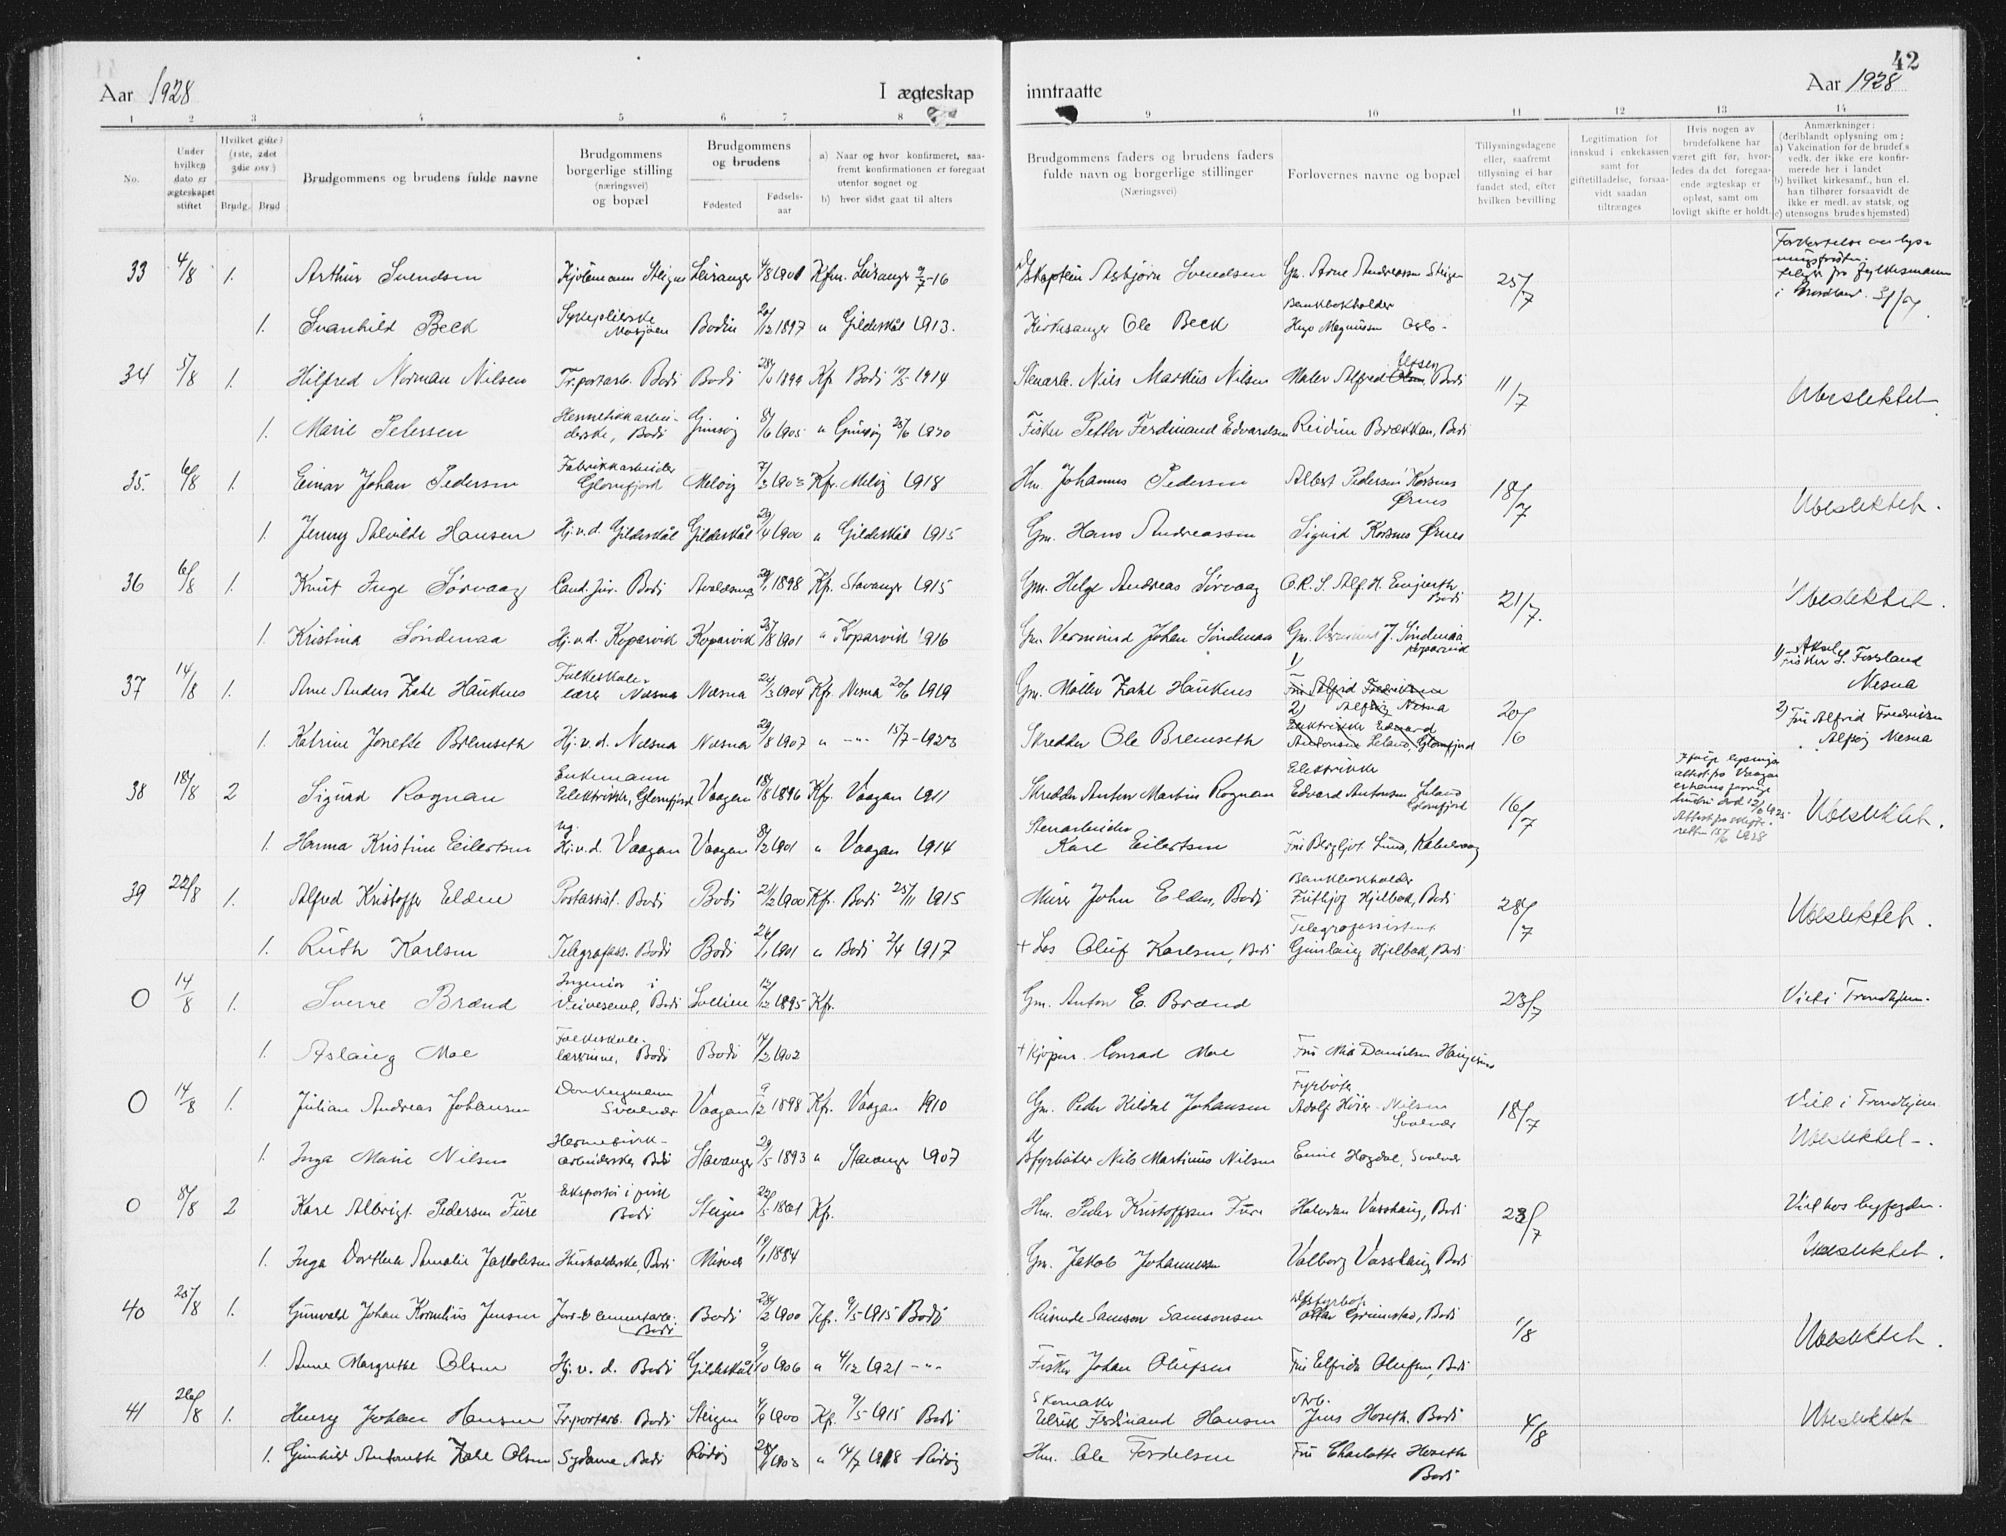 42
Aar 1928 I ægteskap
inntraatte Aar 1928
1 2 3 4 5 6 7 8
9 10 11 12 13 14
No.
Under hvilken dato er ægteskapet stiftet
Hvilket gifte? (1ste, 2det 3die osv.)
Brudg. Brud
Brudgommens og brudens fulde navne
Brudgommens borgerlige stilling (næringsvei) og bopæl
Brudgommens og brudens
Fødested
Fødsels-aar
a) Naar og hvor konfirmeret, saa-fremt konfirmationen er foregaat utenfor sognet og
b) hvor sidst gaat til alters
Brudgommens faders og brudens faders fulde navn og borgerlige stillinger
(Næringsvei)
Forlovernes navne og bopæl
Tillysningsdagene eller, saafremt tillysning ei har fundet sted, efter hvilken bevilling
Legitimation for indskud i enkekassen samt for giftetilladelse, forsaa-vidt saadan tiltrænges
Hvis nogen av brudefolkene har været gift før, hvor-ledes da det foregaa-ende ægteskap er opløst, samt om lovligt skifte er holdt.
Anmærkninger:
(deriblandt oplysning om;
a) Vakcination for de brudef s vedk. der ikke ere konfir-merede her i landet
b) hvilket kirkesamf., hun el. han tilhører forsaavidt de ikke er medl. av statsk, og
c) utensogns brudes hjemsted)
33 4/8 1. Arthur Svendsen Steigen Leiranger 1901 Kfm. Leiranger 9/7-16 Dskaptein Asbjørn Svendsen Gm. Arne Andreassen Steigen 25/7
i Nordland 31/07
1. Svanhild Beck Sykepleierske Mosjøen Bodin 1897 " Gildeskål 1913. Kirkesanger Ole Beck Bankbokholder Hugo Magnussen Oslo.
34 5/8 1. Hilfred Norman Nilsen Tr.portarb. Bodø Bodø 1899 Kf. Bodø 1914 Stenarb. Nils Markus Nilsen Maler Alfred Olsen, Bodø 11/7 Ubeslektet.
1. Marie Petersen Hermetikkarbei-derske, Bodø Gimsøy 8/6 1905 " Gimsøy 25/6 1920 Fisker Petter Ferdinand Edvardsen Reidun Brækkan, Bodø
35. 6/8 1. Einar Johan Pedersen Fabrikkarbeider Glomfjord Meløy 7/3 1903 Kf. Meløy 1918 Hm. Johannes Pedersen Albert Pedersen Korsnes Ørnes 18/7 Ubeslektet.
1. Jenny Alvilde Hansen Hj.v.d. Gildeskål Gildeskål 29/4 1900 " Gildeskål 1915 Gm. Hans Andreassen Sigrid Korsnes Ørnes
36 6/8 1. Knut Inge Sørvaag Cand. jur. Bodø Avaldsnes 1898 Kf. Stavanger 1915 Gm. Helge Andreas Sørvaag O.R.S. Alf. H. Bodø 21/7. Ubeslektet.
1. Kristina Søndenaa Hj.v.d. Kopervik Kopervik 1901 " Kopervik 1916 Gm. Vermund Johan Søndenaa Gm. Vermund J. Søndenaa Kopervik
37 14/8 1. Arne Anders Zahl Hauknes Folkeskole-lærer Nesna Nesna 1904 Kf. Nesna 20/6 1919 Gm. Møller Zahl Hauknes 1) Fru Alfrid Fredriksen Nesna 20/6 1) Fisker Aksel S. Forsland Nesna
1. Katrine Jonette Bremseth Hj.v.d. Nesna Nesna 29/8 1907 " -"- 15/7-1923 Skredder Ole Bremseth 2) Elektrikker Edvard Antonsen Leland, Glomfjord 2) Fru Alfrid Fredriksen Nesna
38 18/8 2 Sigurd Rognan Enkemann Elektriker, Glomfjord Vaagan 18/8 1896 Kf. Vaagan 1911 Skredder Anton Martin Rognan Elektrikker Edvard Antonsen Leland Glomfjord 16/7 Ifølge lysnings attest fra Vaagan er hans forrige hustru død 1925. Attest fra skifte-retten 15/6 1928 Ubeslektet.
1. Hanna Kristine Eilertsen Hj.v.d. Vaagan Vaagan 1901 " Vaagan 1914 Stenarbeider Karl Eilertsen Fru Bergljot Lund, Kabelvaag
39 22/8 1. Alfred Kristoffer Elden Postassist. Bodø Bodø 1900 Kf. Bodø 25/11 1915 Murer John Elden, Bodø Bankbokholder Fritjof Hjelbak, Bodø 28/7 Ubeslektet.
1. Ruth Karlsen Telegrafass. Bodø Bodø 1901 " Bodø 2/4 1917 + Los Oluf Karlsen, Bodø Telegrafassistent Gunlaug Hjelbak, Bodø
0 14/8 1. Sverre Brænd Ingeniør i Veivesenet, Bodø 1895 Kf. Gm. Anton E. Brænd 23/7 Viet i Trondhjem.
1. Aslaug Moe Folkeskole-lærerinne, Bodø Bodø 1902 + Kjøpm. Conrad Moe Fru Mia Danielsen Haugesund
0 14/8 1. Julian Andreas Johansen Donkeymann Svolvær Vaagan 9/12 1898 Kf. Vaagan 1910 Gm. Peder Hildal Johansen Fyrbøter Adolf Høier Nilsen Svolvær 18/7 Viet i Trondhjem
1. Inga Marie Nilsen Hermetikk-arbeiderske, Bodø Stavanger 29/5 1893 " Stavanger 1907 fyrbøter Nils Martinus Nilsen Emil Hogdal, Svolvær Ubeslektet.
0 8/8 2 Karl Albrigt Pedersen Fure Eksportør i fisk Bodø Steigen Kf. Hm. Peder Kristoffersen Fure Halvdan Vasshaug, Bodø 23/7 Viet hos byfogden.
1. Inga Dorthea Amalie Jakobsen Husholderske, Bodø Misvær 19/1 1884 Gm. Jakob Johannessen Valborg Vasshaug, Bodø Ubeslektet.
40 25/8 1. Gunvald Johan Kornelius Jensen Jord & cementarb. Bodø Bodø 28/2 1900 Kf. 9/5-1915 Bodø Samson Samsonsen Ottar Grimstad, Bodø 1/8 Ubeslektet.
1. Anne Margrethe Olsen Hj.v.d. Bodø Gildeskål 9/10 1906 " 4/12 1921 -"- Fisker Johan Olufsen Fru Elfrida Olufsen, Bodø
41 26/8 1. Henry Johan Hansen Tr.portarb. Bodø Steigen 4/9 1900 Kf. 9/5-1915 Bodø Skomaker Ulrik Ferdinand Hansen Arb. Jens Hoseth, Bodø 4/8 Ubeslektet
1. Gunhild Antonette Zahl Olsen Sydame Bodø Rødøy 1903 " 14/7 1918 Rødøy Hm. Ole Tordelsen Fru Charlotte Hoseth Bodø